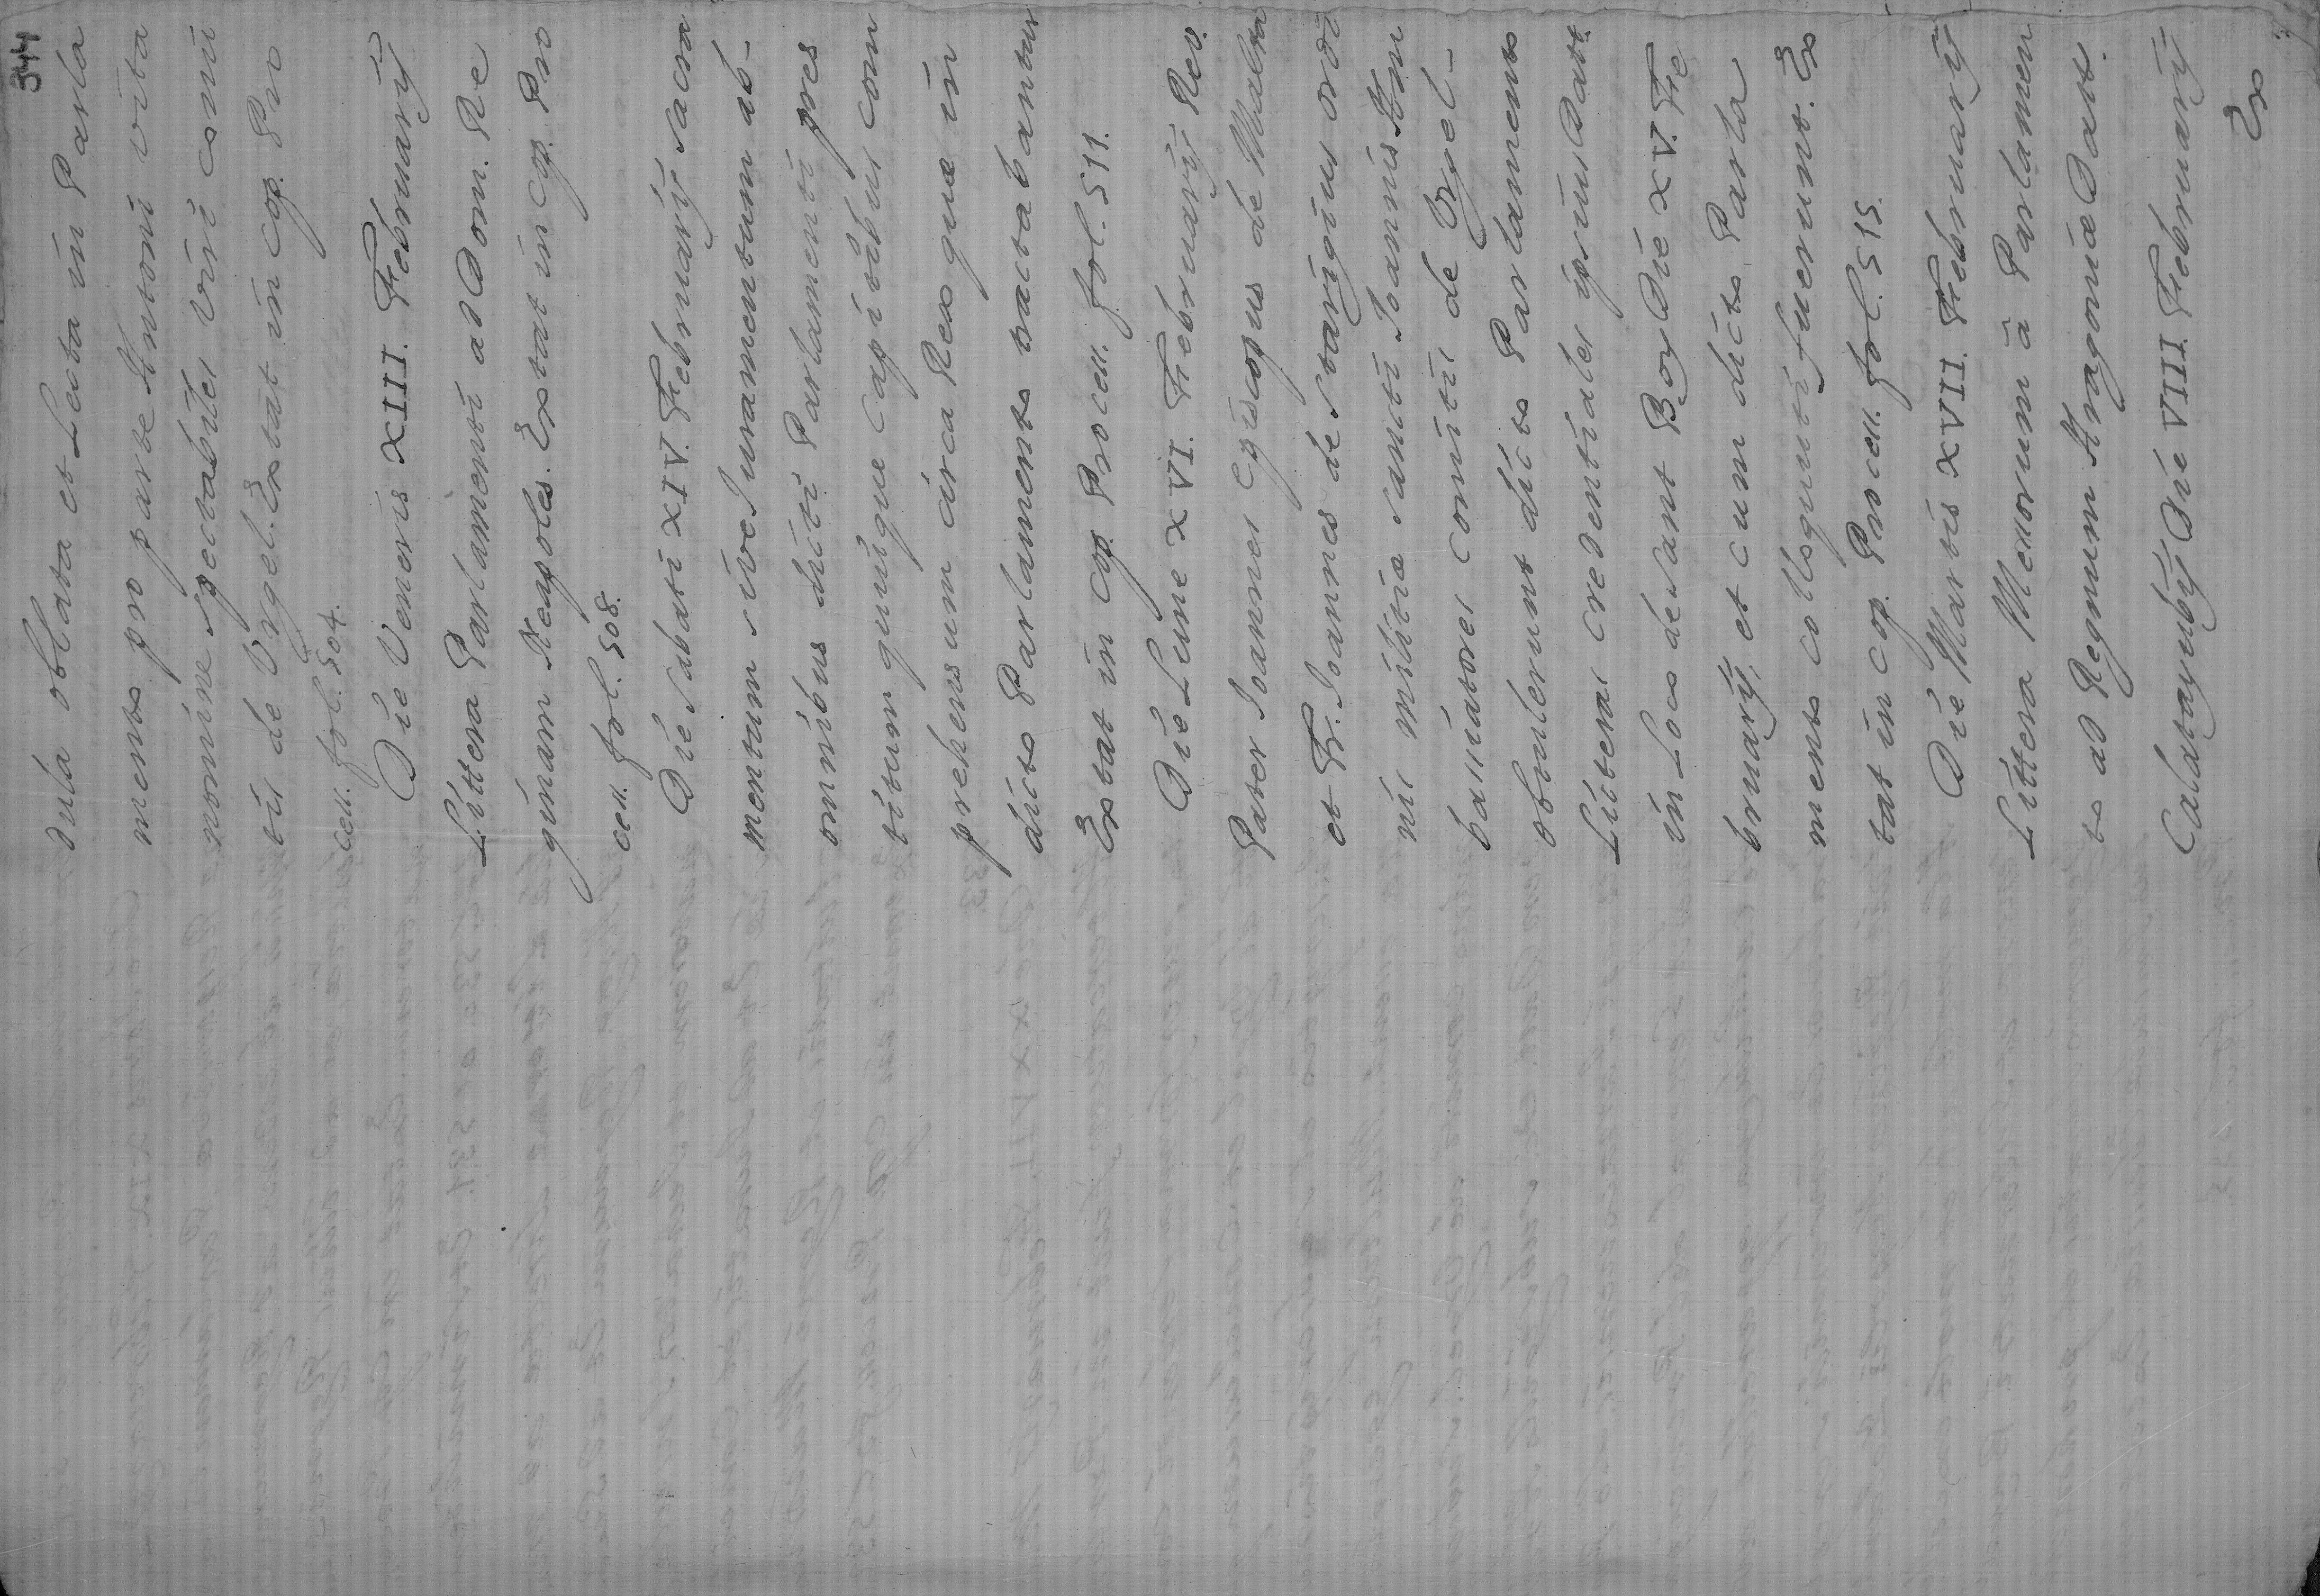 344
dula oblata et Lecta in Parla
mento pro parte Antoni vita
nomine spectabiles viri comi
tis de Urgel. Extat in cop. Pro
cess. fol. 504.
Die Veneris XIII. Februarÿ
Littera Parlamenti ad Dom. Re
ginam Neapoles. Extat in cop. Pro
cess. fol. 508.
Die sabati XIV. Februarÿ sacra
mentum sive Juramentum ab-
omnibus dicti Parlamenti pres
titum quinque capitibus com
prehensum circa Rex quæ in
dicto Parlamento tractabantur
Extat in cop. Process. fol. 511.
Die Lune XVI. Februarÿ Rev.
Pater Joannes episcopus de Malta
et Fr. Joannes de starigius ordi
nis militiæ sancti Joannis Am
bassiatores comitis de Orgel-
obtulerunt dicto Parlamento
Litteras credentiales ipsius Datt.
in Loco de sant Boy Die XV. Fe
bruarÿ, et cum dicto Parla
mento colloquuti fuerunt. Ex
tat in cop. Process. fol. 515.
Die Martis XVII. Februarÿ
Littera Messorum à Parlamen
to ad Regnum Aragoniæ Datt.
Calatayubÿ Die VIII. Februarÿ
Ex